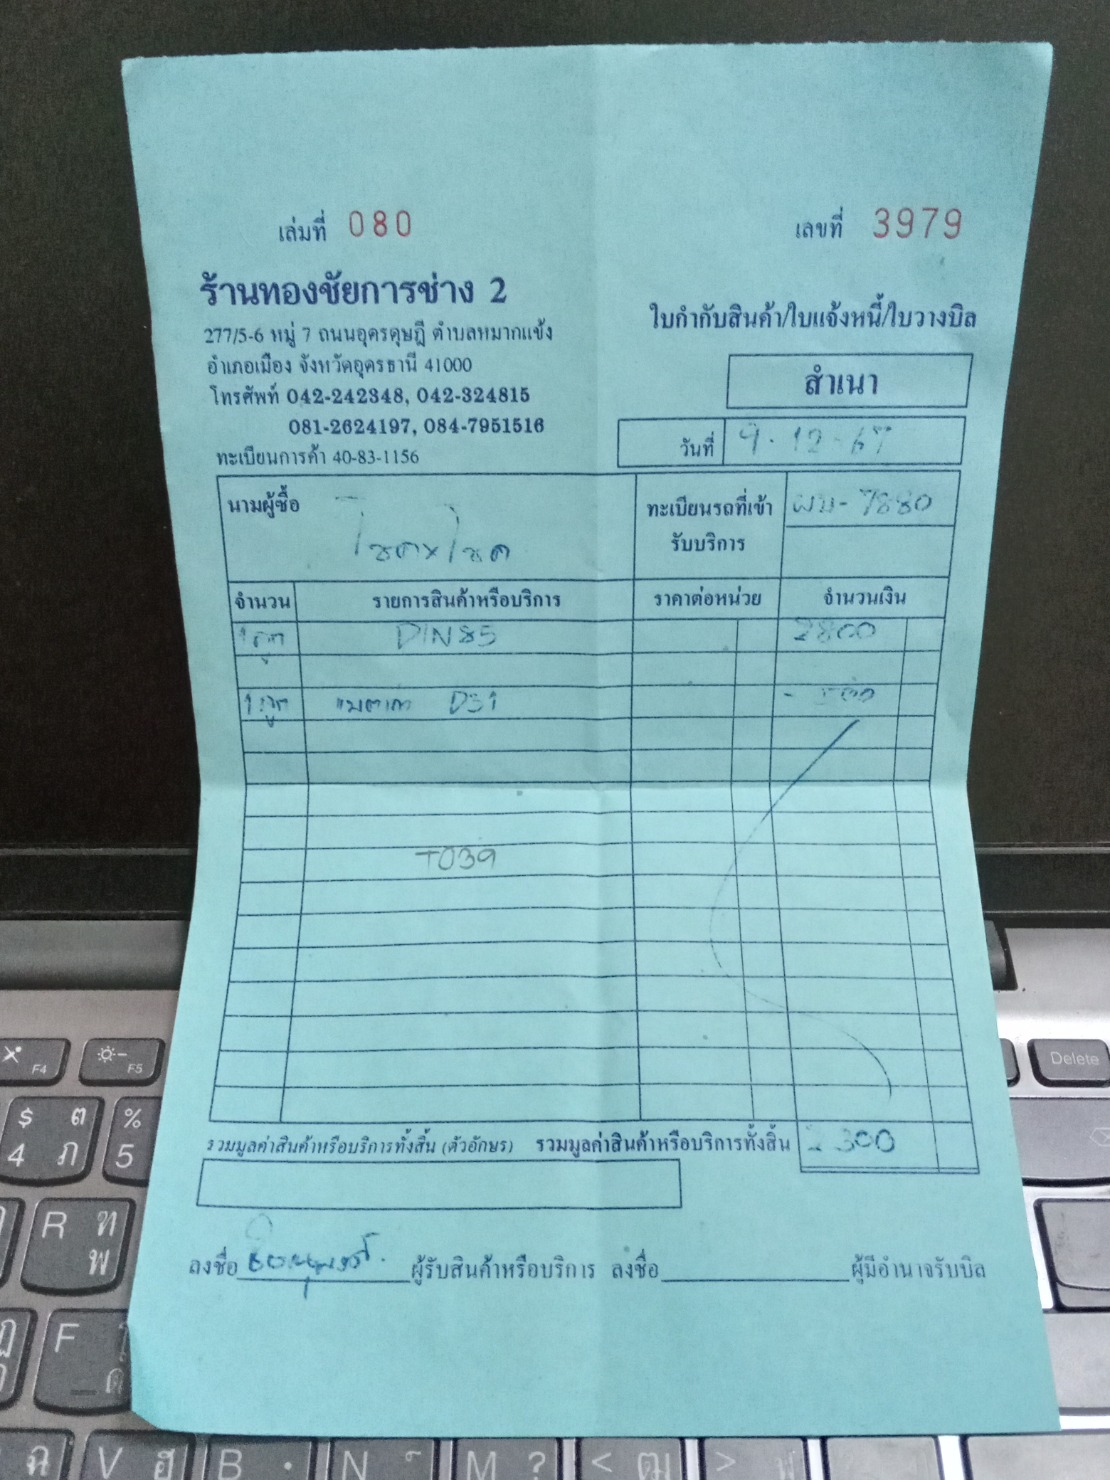 เล่มที่ 080
เลขที่ 3979
ร้านทองชัยการช่าง 2
277/5-6 หมู่ 7 ถนนอุดรดุษฎี ตำบลหมากแข้ง
อำเภอเมือง จังหวัดอุดรธานี 41000
โทรศัพท์ 042-242348, 042-324815
081-2624197, 084-7951516
ทะเบียนการค้า 40-83-1156
ใบกำกับสินค้า/ใบแจ้งหนี้/ใบวางบิล
สำเนา
วันที่ 9-12-67
นามผู้ซื้อ โชค×โชค
ทะเบียนรถที่เข้า ผม-7880
รับบริการ
จำนวน รายการสินค้าหรือบริการ ราคาต่อหน่วย จำนวนเงิน
1ลูก DIN85 2800
1ลูก แบตเก่า D31 - 500
T039
รวมมูลค่าสินค้าหรือบริการทั้งสิ้น (ตัวอักษร) รวมมูลค่าสินค้าหรือบริการทั้งสิ้น 2300
ลงชื่อ ผู้รับสินค้าหรือบริการ ลงชื่อ ผู้มีอำนาจรับบิล
$ ต
4 ภ
%
5
F4
F5
Delete
R ฑ
พ
F
ด
V ฮ
B
N
M ?
< ฒ
>